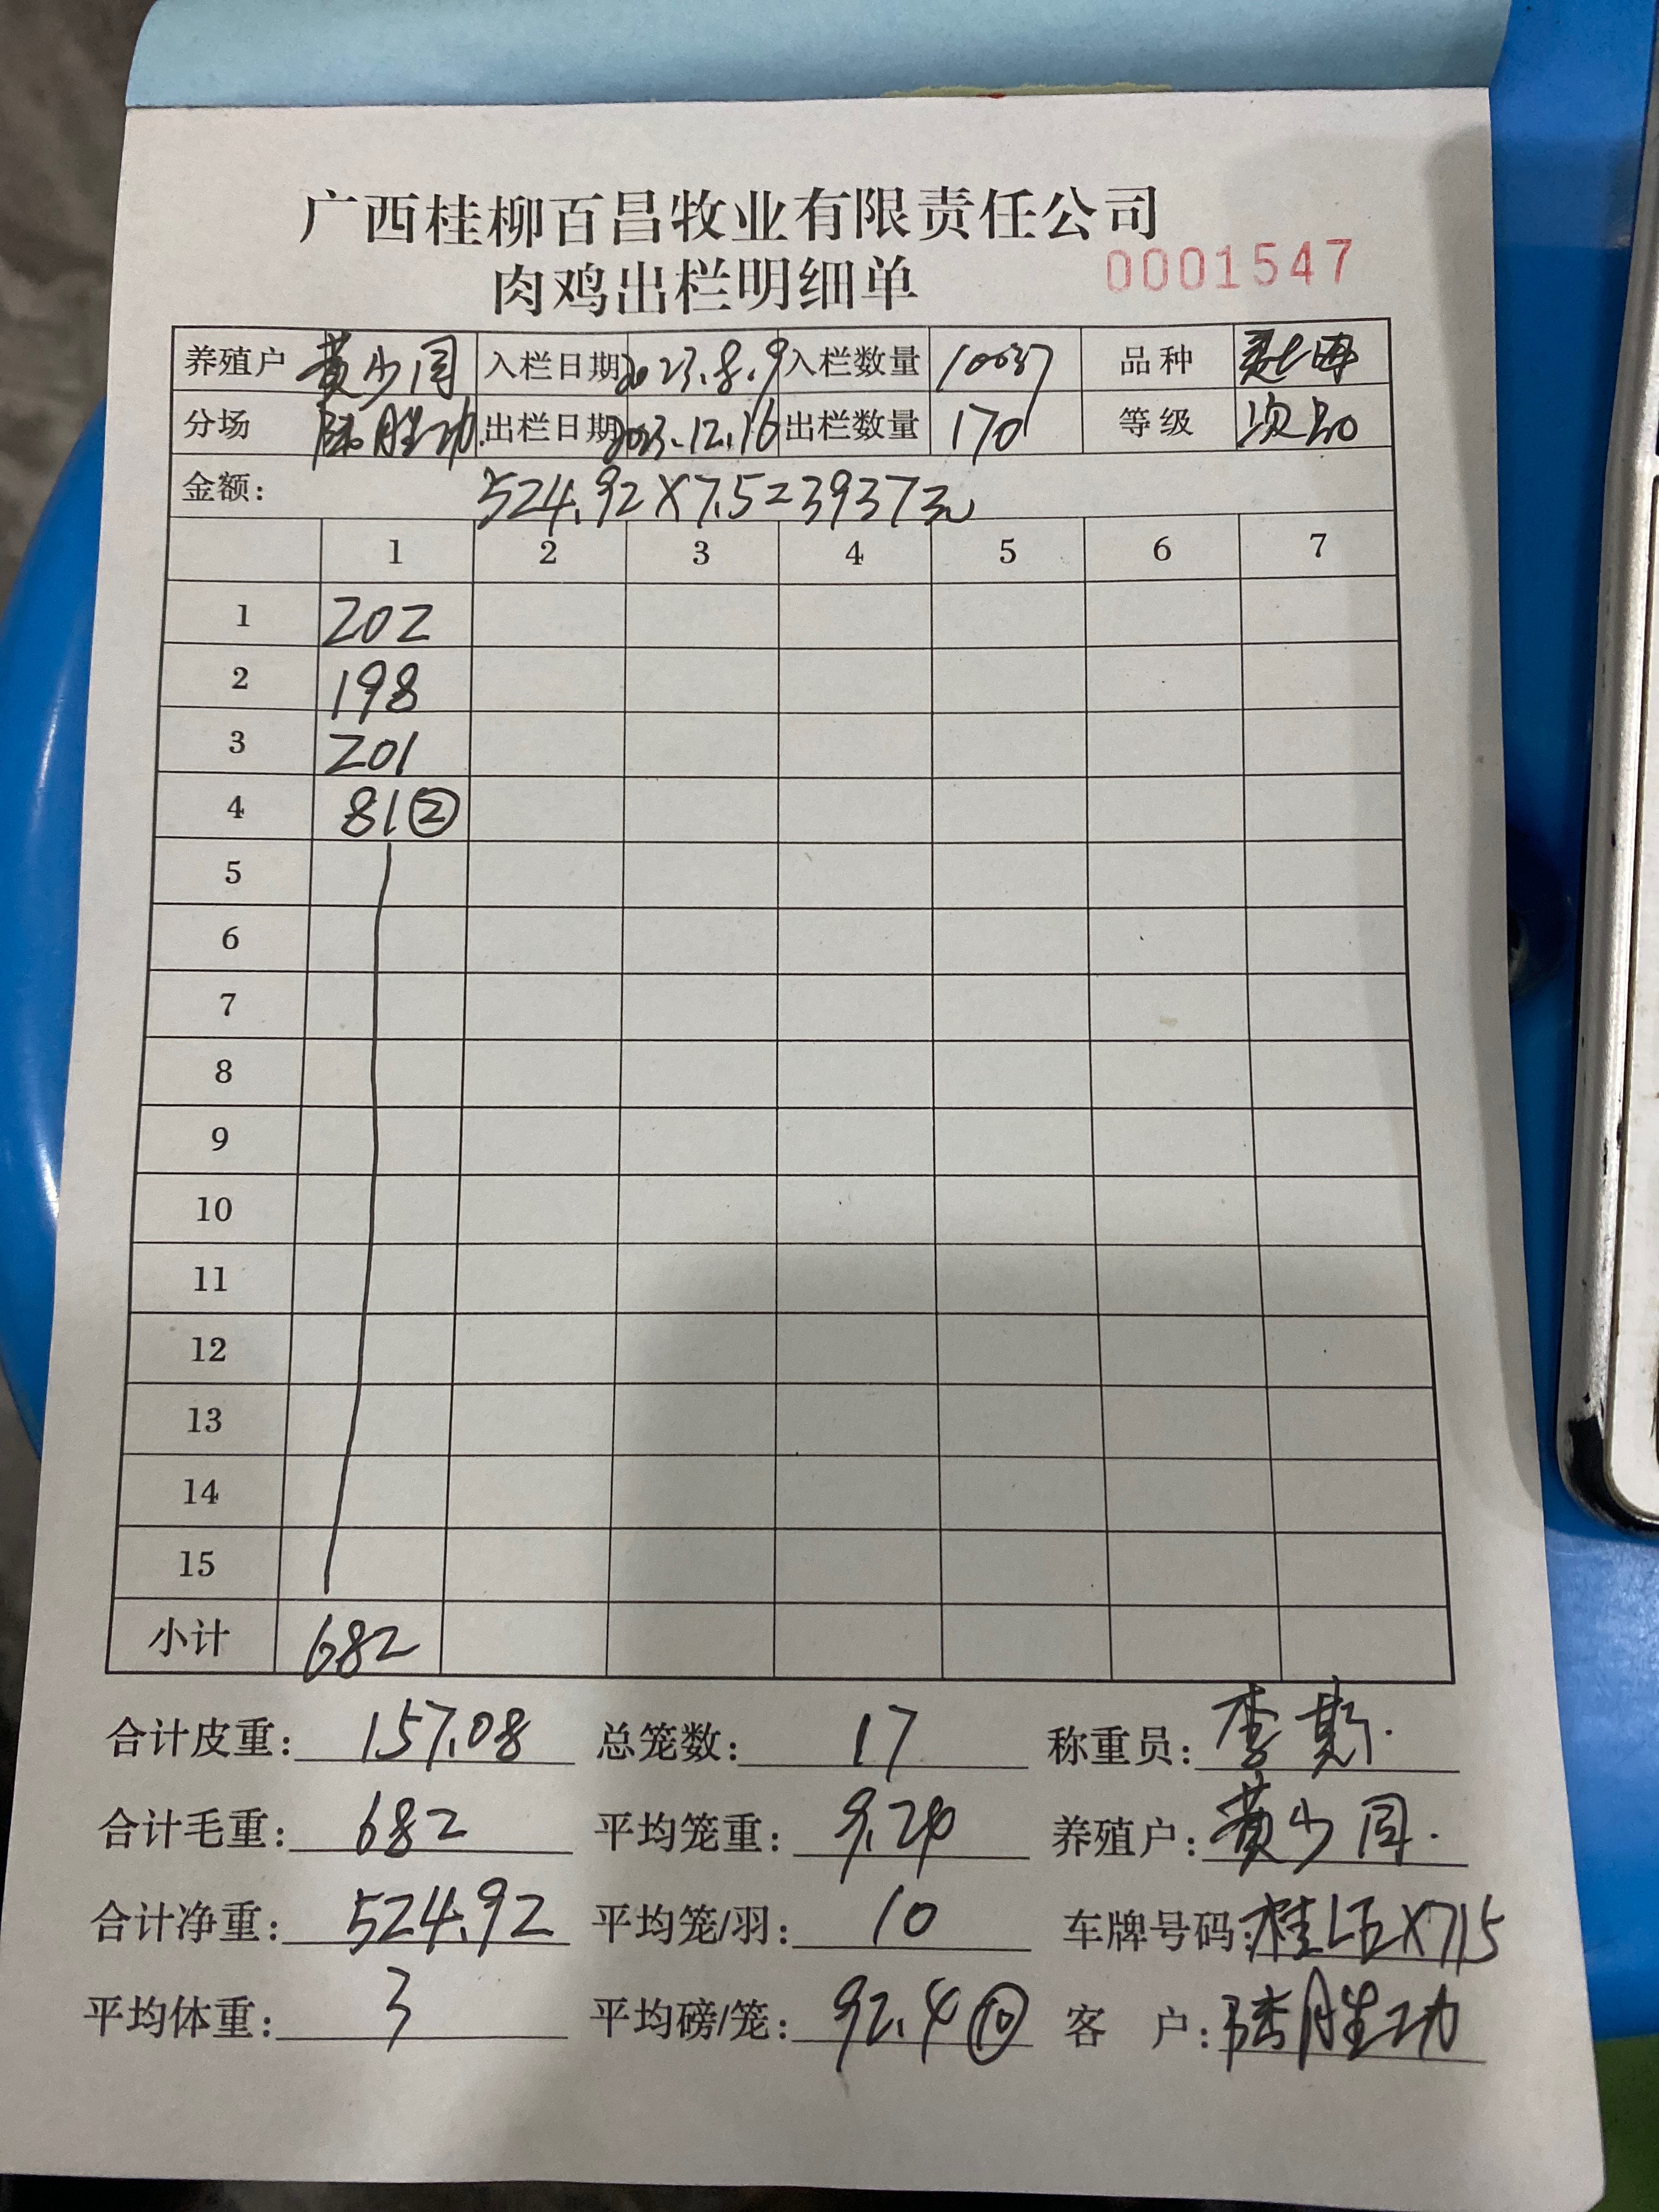 广西桂柳百昌牧业有限责任公司
肉鸡出栏明细单 0001547
养殖户 黄少同 入栏日期 2023.8.9 入栏数量 10037 品种
分场 陆胜功 出栏日期 2023.12.16 出栏数量 170 等级 次品
金额: 524.92×7.5=3937元
1 2 3 4 5 6 7
1 202
2 198
3 201
4 81②
5
6
7
8
9
10
11
12
13
14
15
小计 682
合计皮重: 157.08 总笼数: 17 称重员: 李斯
合计毛重: 682 平均笼重: 9.24 养殖户: 黄少同
合计净重: 524.92 平均笼/羽: 10 车牌号码: 桂
平均体重: 3 平均磅/笼: 92.4⑩ 客户: 陆胜功